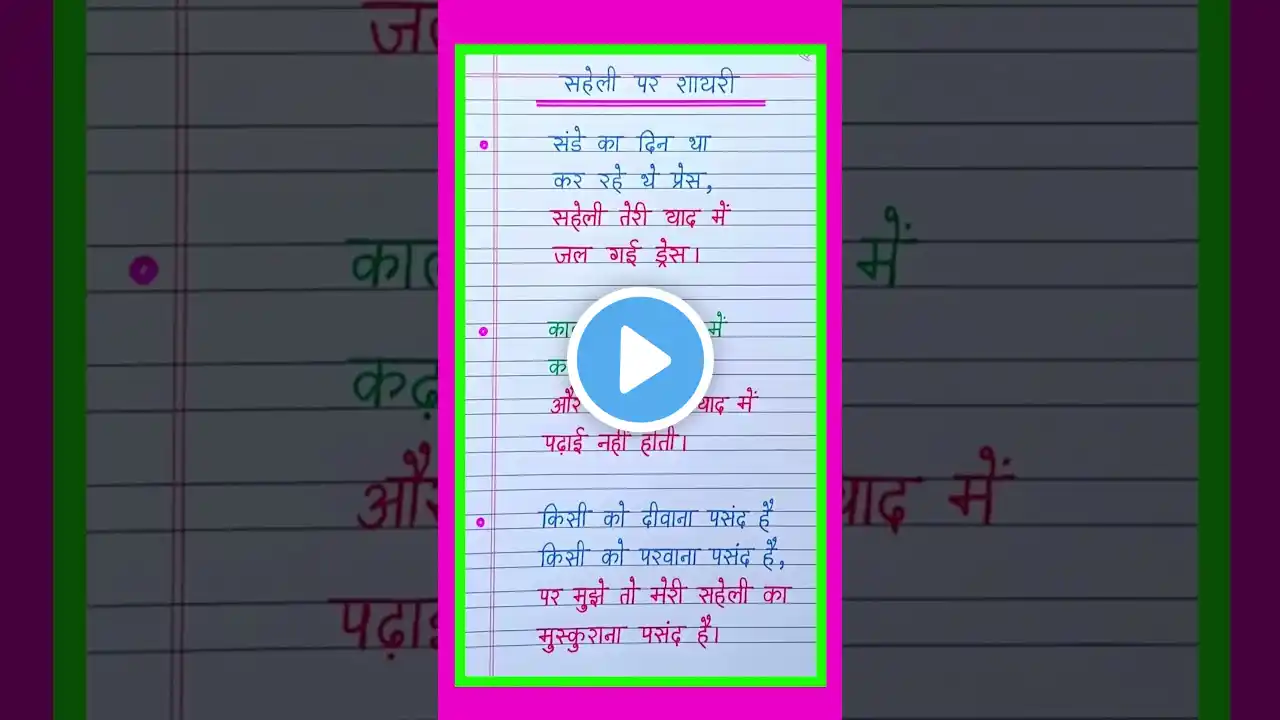 सहेली पर शायरी
संडे का दिन था
कर रहे थे प्रेस,
सहेली तेरी याद में
जल गई ड्रेस।
में
और याद में
पढ़ाई नहीं होती।
किसी को दीवाना पसंद है
किसी को परवाना पसंद है,
पर मुझे तो मेरी सहेली का
मुस्कुराना पसंद है।